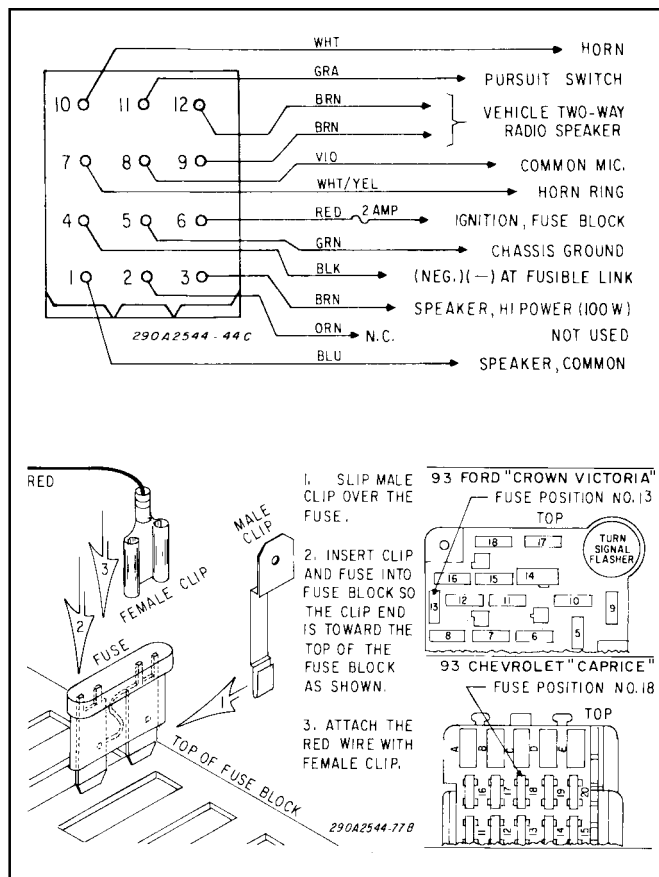 WHT HORN
GRA PURSUIT SWITCH
10 11 12 BRN VEHICLE TWO-WAY
BRN RADIO SPEAKER
7 8 9 VIO COMMON MIC.
WHT/YEL HORN RING
4 5 6 RED 2 AMP IGNITION, FUSE BLOCK
GRN CHASSIS GROUND
BLK (NEG.)(-) AT FUSIBLE LINK
1 2 3 BRN SPEAKER, HI POWER (100 W)
290A2544-44C ORN N.C. NOT USED
BLU SPEAKER, COMMON
RED
3
FEMALE CLIP
2
FUSE
MALE
CLIP
1
TOP OF FUSE BLOCK
1. SLIP MALE
CLIP OVER THE
FUSE.
2. INSERT CLIP
AND FUSE INTO
FUSE BLOCK SO
THE CLIP END
IS TOWARD THE
TOP OF THE
FUSE BLOCK
AS SHOWN.
3. ATTACH THE
RED WIRE WITH
FEMALE CLIP.
290A2544-77B
93 FORD "CROWN VICTORIA"
FUSE POSITION NO. 13
TOP
TURN
SIGNAL
FLASHER
18 17
16 15 14
13 12 11 10 9
8 7 6 5
93 CHEVROLET "CAPRICE"
FUSE POSITION NO. 18
TOP
A B C D E
16 17 18 19 20
11 12 13 14 15